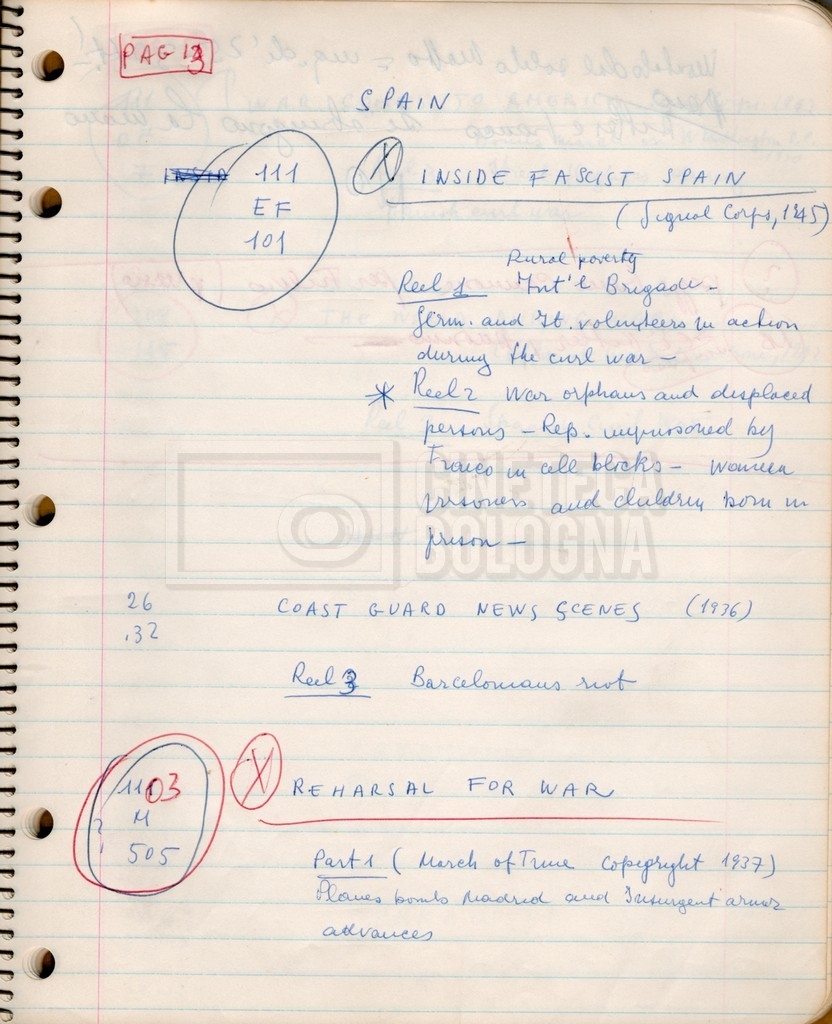 PAG 13
SPAIN
111
EF
101
X INSIDE FASCIST SPAIN
(Signal Corps, 1945)
Rural poverty
Reel 1 Int'l Brigade -
Germ. and It. volunteers in action
during the civil war -
* Reel 2 War orphans and displaced
persons - Rep. imprisoned by
Franco in cell blocks - Women
prisoners and children born in
prison -
CINETECA
BOLOGNA
26 COAST GUARD NEWS SCENES (1936)
.32
Reel 3 Barcelonians riot
11103
M
505
X REHARSAL FOR WAR
Part 1 (March of Time copyright 1937)
Planes bomb Madrid and Insurgent army
advances